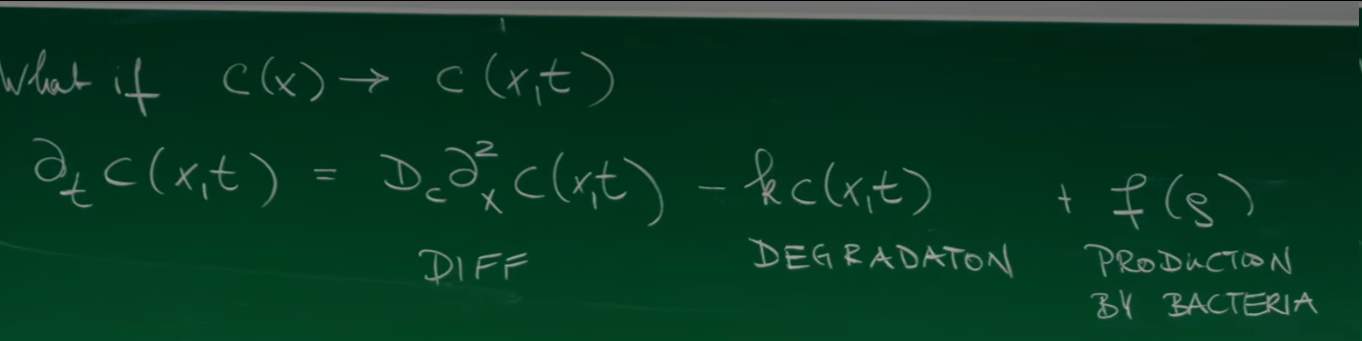 What if C(x) → C(x,t)
∂ₜ C(x,t) = D_c ∂ₓ² C(x,t) - k C(x,t) + f(ρ)
DIFF DEGRADATON PRODUCTON
BY BACTERIA